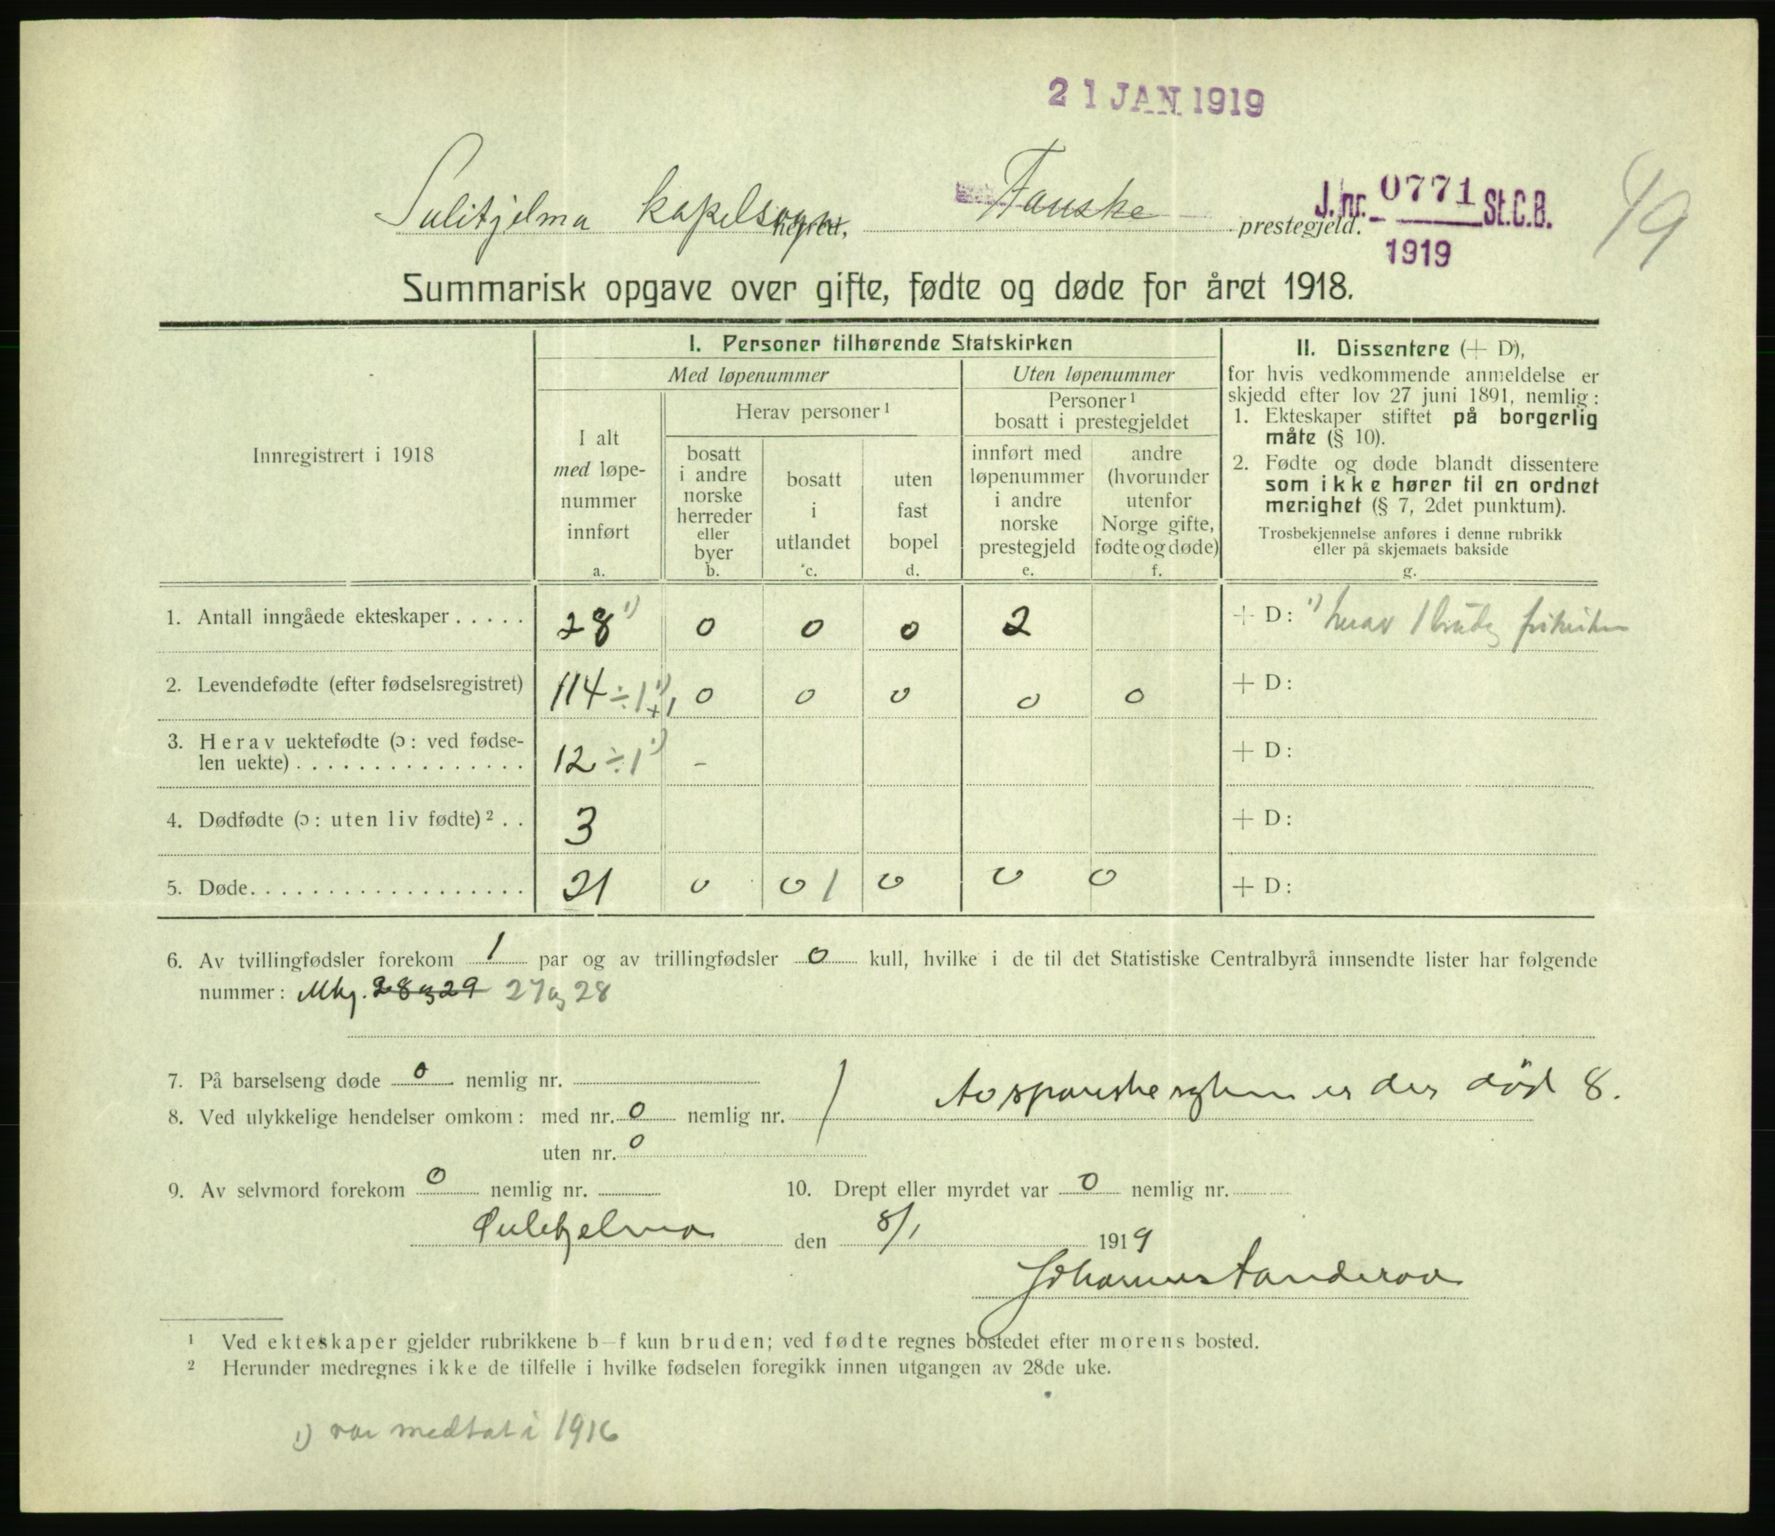 21 JAN 1919
Sulitjelma kapelsogn herred, Fauske prestegjeld.
J. nr. 0771 St.C.B.
1919
49
Summarisk opgave over gifte, fødte og døde for året 1918.
Innregistrert i 1918
I. Personer tilhørende Statskirken
Med løpenummer
Uten løpenummer
I alt
med løpe-
nummer
innført
a.
Herav personer ¹
bosatt
i andre
norske
herreder
eller
byer
b.
bosatt
i
utlandet
c.
uten
fast
bopel
d.
Personer ¹
bosatt i prestegjeldet
innført med
løpenummer
i andre
norske
prestegjeld
e.
andre
(hvorunder
utenfor
Norge gifte,
fødte og døde)
f.
II. Dissentere (+ D),
for hvis vedkommende anmeldelse er
skjedd efter lov 27 juni 1891, nemlig:
1. Ekteskaper stiftet på borgerlig
måte (§ 10).
2. Fødte og døde blandt dissentere
som ikke hører til en ordnet
menighet (§ 7, 2det punktum).
Trosbekjennelse anføres i denne rubrikk
eller på skjemaets bakside
g.
1. Antall inngåede ekteskaper . . . . . 28 ¹) 0 0 0 2 + D: ¹) herav 1 frikirken
2. Levendefødte (efter fødselsregistret) 114 ÷ 1 ¹) + 1 0 0 0 0 0 + D:
3. Herav uektefødte (ɔ: ved fødse-
len uekte) . . . . . . . . . . . . . . . 12 ÷ 1 ¹) – + D:
4. Dødfødte (ɔ: uten liv fødte) ² . . 3 + D:
5. Døde. . . . . . . . . . . . . . . . . . 21 0 0 1 0 0 0 + D:
6. Av tvillingfødsler forekom 1 par og av trillingfødsler 0 kull, hvilke i de til det Statistiske Centralbyrå innsendte lister har følgende
nummer: Mkj. 28 og 29 27 og 28
7. På barselseng døde 0 nemlig nr.
Av spanske syken er der død 8.
8. Ved ulykkelige hendelser omkom: med nr. 0 nemlig nr.
uten nr. 0
9. Av selvmord forekom 0 nemlig nr. 10. Drept eller myrdet var 0 nemlig nr.
Sulitjelma den 8/1 1919
Johannes
¹ Ved ekteskaper gjelder rubrikkene b–f kun bruden; ved fødte regnes bostedet efter morens bosted.
² Herunder medregnes ikke de tilfelle i hvilke fødselen foregikk innen utgangen av 28de uke.
1) var medtat i 1916